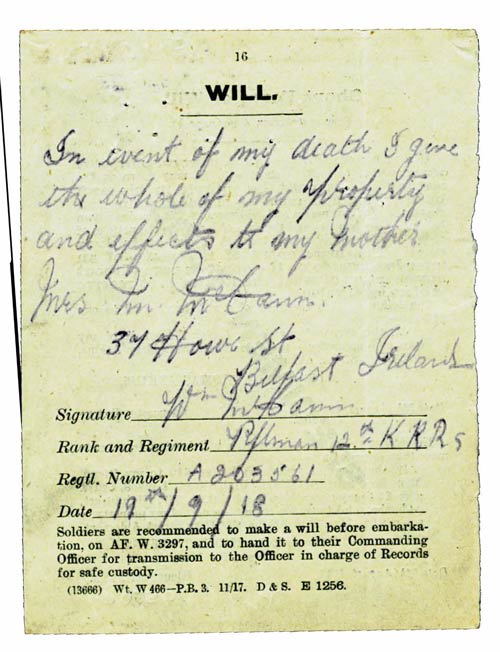 16
WILL.
In event of my death I give
the whole of my property
and effects to my mother
Mrs M. McCann.
37 Howe St
Belfast Ireland
Signature Wm McCann
Rank and Regiment Rflman 12th K R Rs
Regtl. Number A 203561
Date 19th/9/18
Soldiers are recommended to make a will before embarka-
tion, on AF. W. 3297, and to hand it to their Commanding
Officer for transmission to the Officer in charge of Records
for safe custody.
(13666) Wt. W 466—P.B. 3. 11/17. D & S. E 1256.